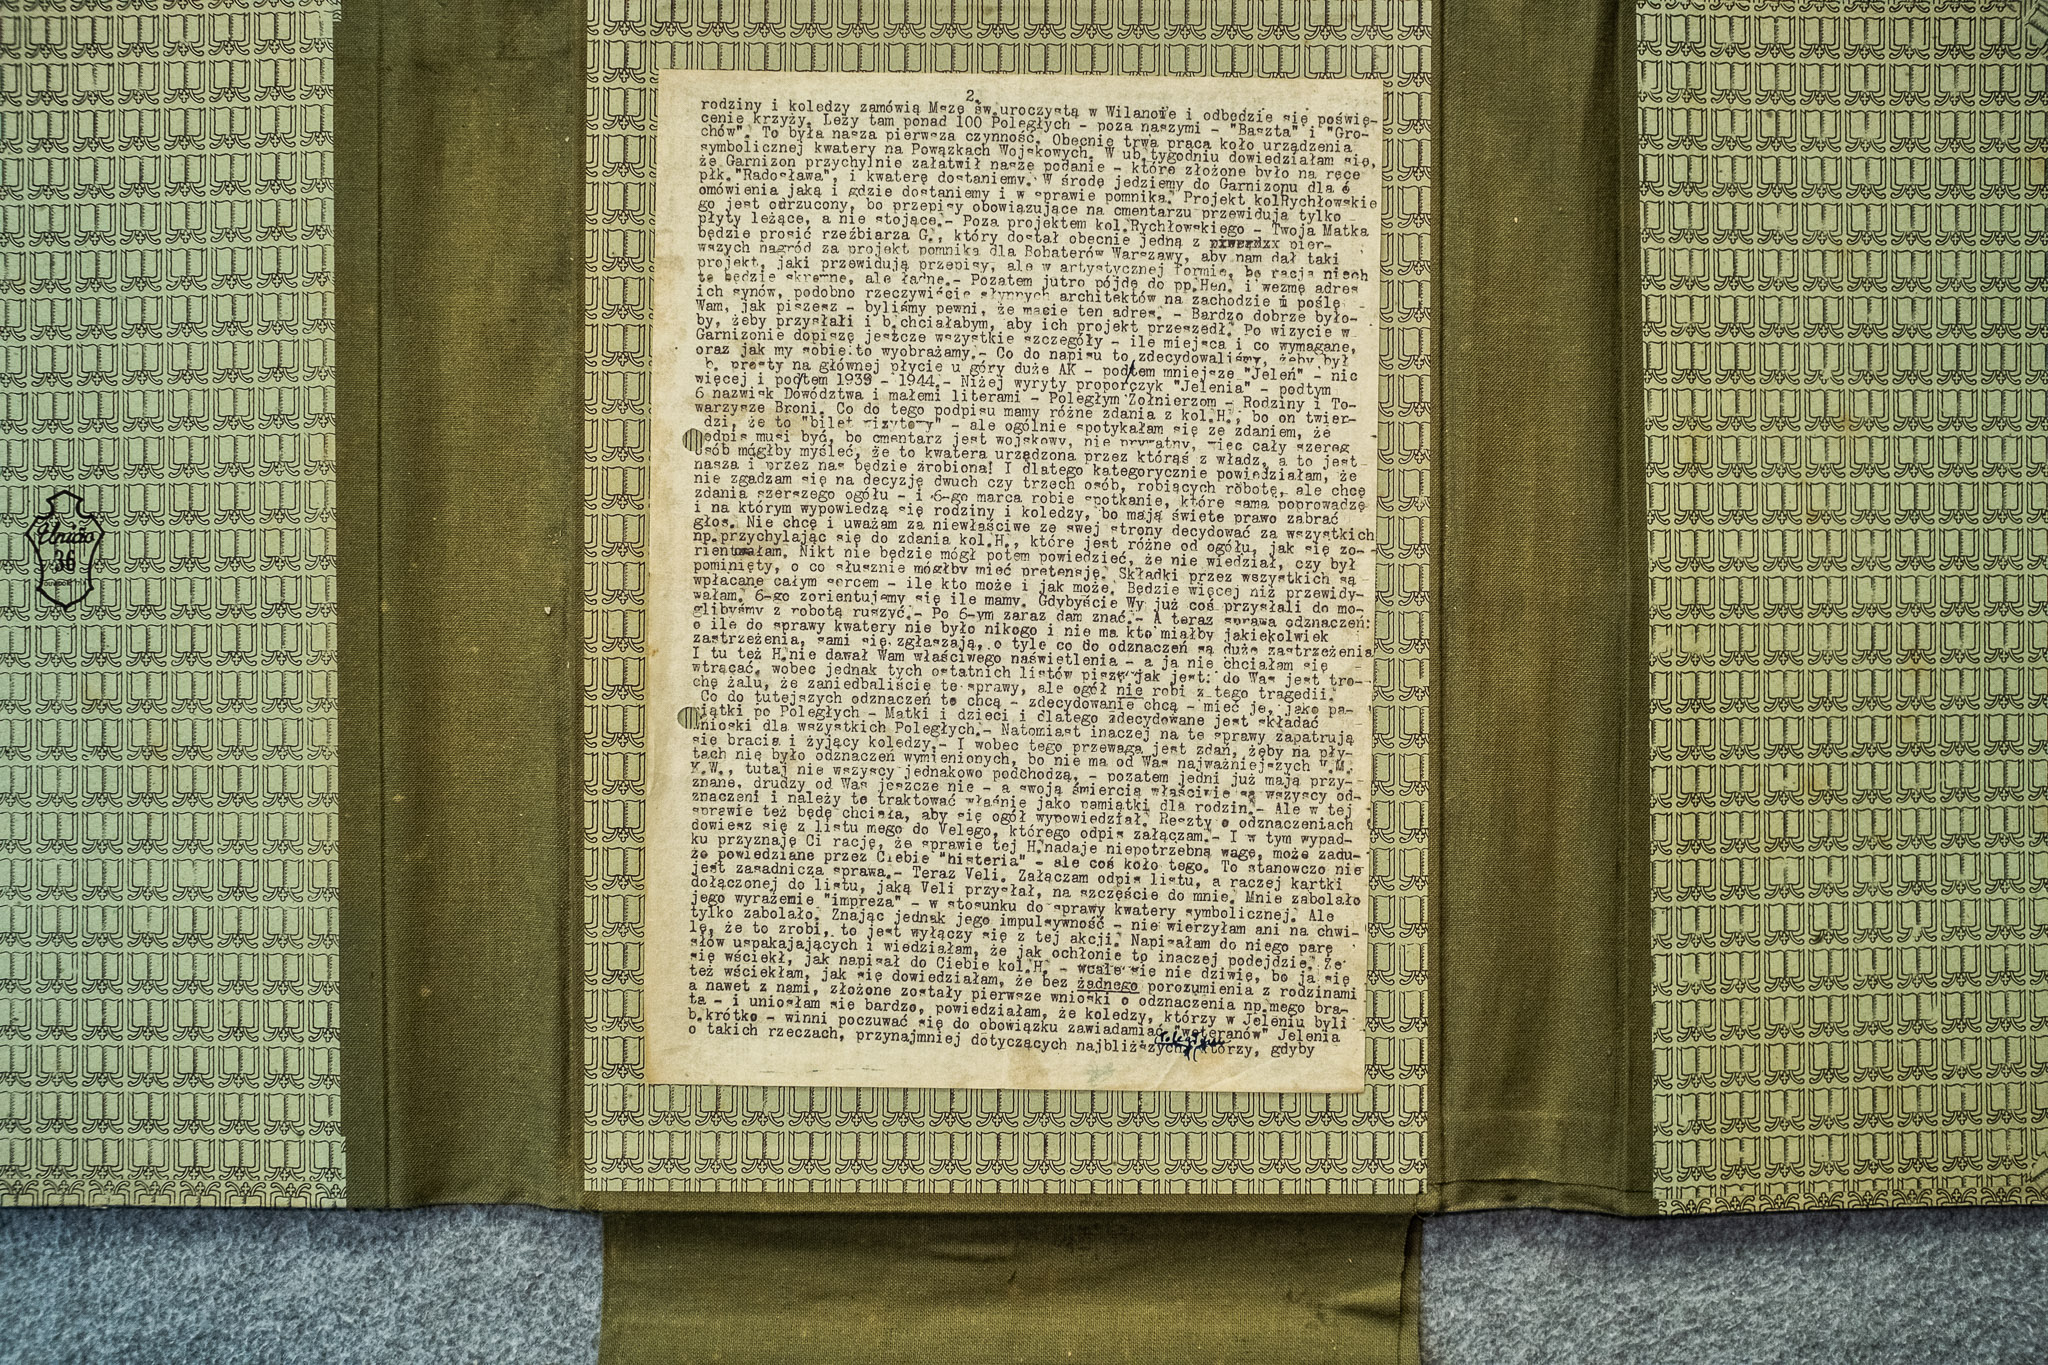 2.
rodziny i koledzy zamówią Mszę św.uroczystą w Wilanowie i odbędzie się poświę-
cenie krzyży. Leży tam ponad 100 Poległych - poza naszymi - "Baszta" i "Gro-
chów". To była nasza pierwsza czynność. Obecnie trwa praca koło urządzenia
symbolicznej kwatery na Powązkach Wojskowych. W ub.tygodniu dowiedziałam się,
że Garnizon przychylnie załatwił nasze podanie - które złożone było na ręce
płk."Radosława", i kwaterę dostaniemy. W środę jedziemy do Garnizonu dla
omówienia jaką i gdzie dostaniemy i w sprawie pomnika. Projekt kolRychłowskie
go jest odrzucony, bo przepisy obowiązujące na cmentarzu przewidują tylko
płyty leżące, a nie stojące.- Poza projektem kol.Rychłowskiego - Twoja Matka
będzie prosić rzeźbiarza G., który dostał obecnie jedną z pier-
wszych nagród za projekt pomnika dla Bohaterów Warszawy, aby nam dał taki
projekt, jaki przewidują przepisy, ale w artystycznej formie, bo racja niech
to będzie skromne, ale ładne.- Pozatem jutro pójdę do pp.Hen. i wezmę adres
ich synów, podobno rzeczywiście słynnych architektów na zachodzie i poślę
Wam, jak piszesz - byliśmy pewni, że macie ten adres. - Bardzo dobrze było-
by, żeby przysłali i b.chciałabym, aby ich projekt przeszedł. Po wizycie w
Garnizonie dopiszę jeszcze wszystkie szczegóły - ile miejsca i co wymagane,
oraz jak my sobie to wyobrażamy.- Co do napisu to zdecydowaliśmy, żeby był
b. prosty na głównej płycie u góry duże AK - pod tem mniejsze "Jeleń" - nic
więcej i pod tem 1939 - 1944.- Niżej wyryty proporczyk "Jelenia" - podtym
6 nazwisk Dowództwa i małemi literami - Poległym Żołnierzom - Rodziny i To-
warzysze Broni. Co do tego podpisu mamy różne zdania z kol.H., bo on twier-
dzi, że to "bilet wizytowy" - ale ogólnie spotykałam się ze zdaniem, że
podpis musi być, bo cmentarz jest wojskowy, nie prywatny, więc cały szereg
osób mógłby myśleć, że to kwatera urządzona przez którąś z władz, a to jest
nasza i przez nas będzie zrobiona! I dlatego kategorycznie powiedziałam, że
nie zgadzam się na decyzję dwuch czy trzech osób, robiących robotę, ale chcę
zdania szerszego ogółu - i 6-go marca robię spotkanie, które sama poprowadzę
i na którym wypowiedzą się rodziny i koledzy, bo mają święte prawo zabrać
głos. Nie chcę i uważam za niewłaściwe ze swej strony decydować za wszystkich
np.przychylając się do zdania kol.H., które jest różne od ogółu, jak się zo-
rientowałam. Nikt nie będzie mógł potem powiedzieć, że nie wiedział, czy był
pominięty, o co słusznie mógłby mieć pretensję. Składki przez wszystkich są
wpłacane całym sercem - ile kto może i jak może. Będzie więcej niż przewidy-
wałam. 6-go zorientujemy się ile mamy. Gdybyście Wy już coś przysłali to mo-
glibyśmy z robotą ruszyć.- Po 6-ym zaraz dam znać.- A teraz sprawa odznaczeń:
o ile do sprawy kwatery nie było nikogo i nie ma kto miałby jakiekolwiek
zastrzeżenia, sami się zgłaszają, o tyle co do odznaczeń są duże zastrzeżenia
I tu też H.nie dawał Wam właściwego naświetlenia - a ja nie chciałam się
wtrącać, wobec jednak tych ostatnich listów piszę jak jest: do Was jest tro-
chę żalu, że zaniedbaliście te sprawy, ale ogół nie robi z tego tragedii.
Co do tutejszych odznaczeń to chcą - zdecydowanie chcą - mieć je, jako pa-
miątki po Poległych - Matki i dzieci i dlatego zdecydowane jest składać
wnioski dla wszystkich Poległych.- Natomiast inaczej na te sprawy zapatrują
się bracia i żyjący koledzy.- I wobec tego przewaga jest zdań, żeby na pły-
tach nie było odznaczeń wymienionych, bo nie ma od Was najważniejszych V.M.
K.W., tutaj nie wszyscy jednakowo podchodzą, - pozatem jedni już mają przy-
znane, drudzy od Was jeszcze nie - a swoją śmiercią właściwie są wszyscy od-
znaczeni i należy to traktować właśnie jako pamiątki dla rodzin.- Ale w tej
sprawie też będę chciała, aby się ogół wypowiedział. Reszty o odznaczeniach
dowiesz się z listu mego do Velego, którego odpis załączam.- I w tym wypad-
ku przyznaję Ci rację, że sprawie tej H.nadaje niepotrzebną wagę, może zadu-
że powiedziane przez Ciebie "histeria" - ale coś koło tego. To stanowczo nie
jest zasadnicza sprawa.- Teraz Veli. Załączam odpis listu, a raczej kartki
dołączonej do listu, jaką Veli przysłał, na szczęście do mnie. Mnie zabolało
jego wyrażenie "impreza" - w stosunku do sprawy kwatery symbolicznej. Ale
tylko zabolało. Znając jednak jego impulsywność - nie wierzyłam ani na chwi-
lę, że to zrobi, to jest wyłączy się z tej akcji. Napisałam do niego parę
słów uspakajających i wiedziałam, że jak ochłonie to inaczej podejdzie. Że
się wściekł, jak napisał do Ciebie kol.H. - wcale się nie dziwię, bo ja się
też wściekłam, jak się dowiedziałam, że bez żadnego porozumienia z rodzinami
a nawet z nami, złożone zostały pierwsze wnioski o odznaczenia np.mego bra-
ta - i uniosłam się bardzo, powiedziałam, że koledzy, którzy w Jeleniu byli
b.krótko - winni poczuwać się do obowiązku zawiadamiać "weteranów" Jelenia
o takich rzeczach, przynajmniej dotyczących najbliższych którzy, gdyby
Unida
36